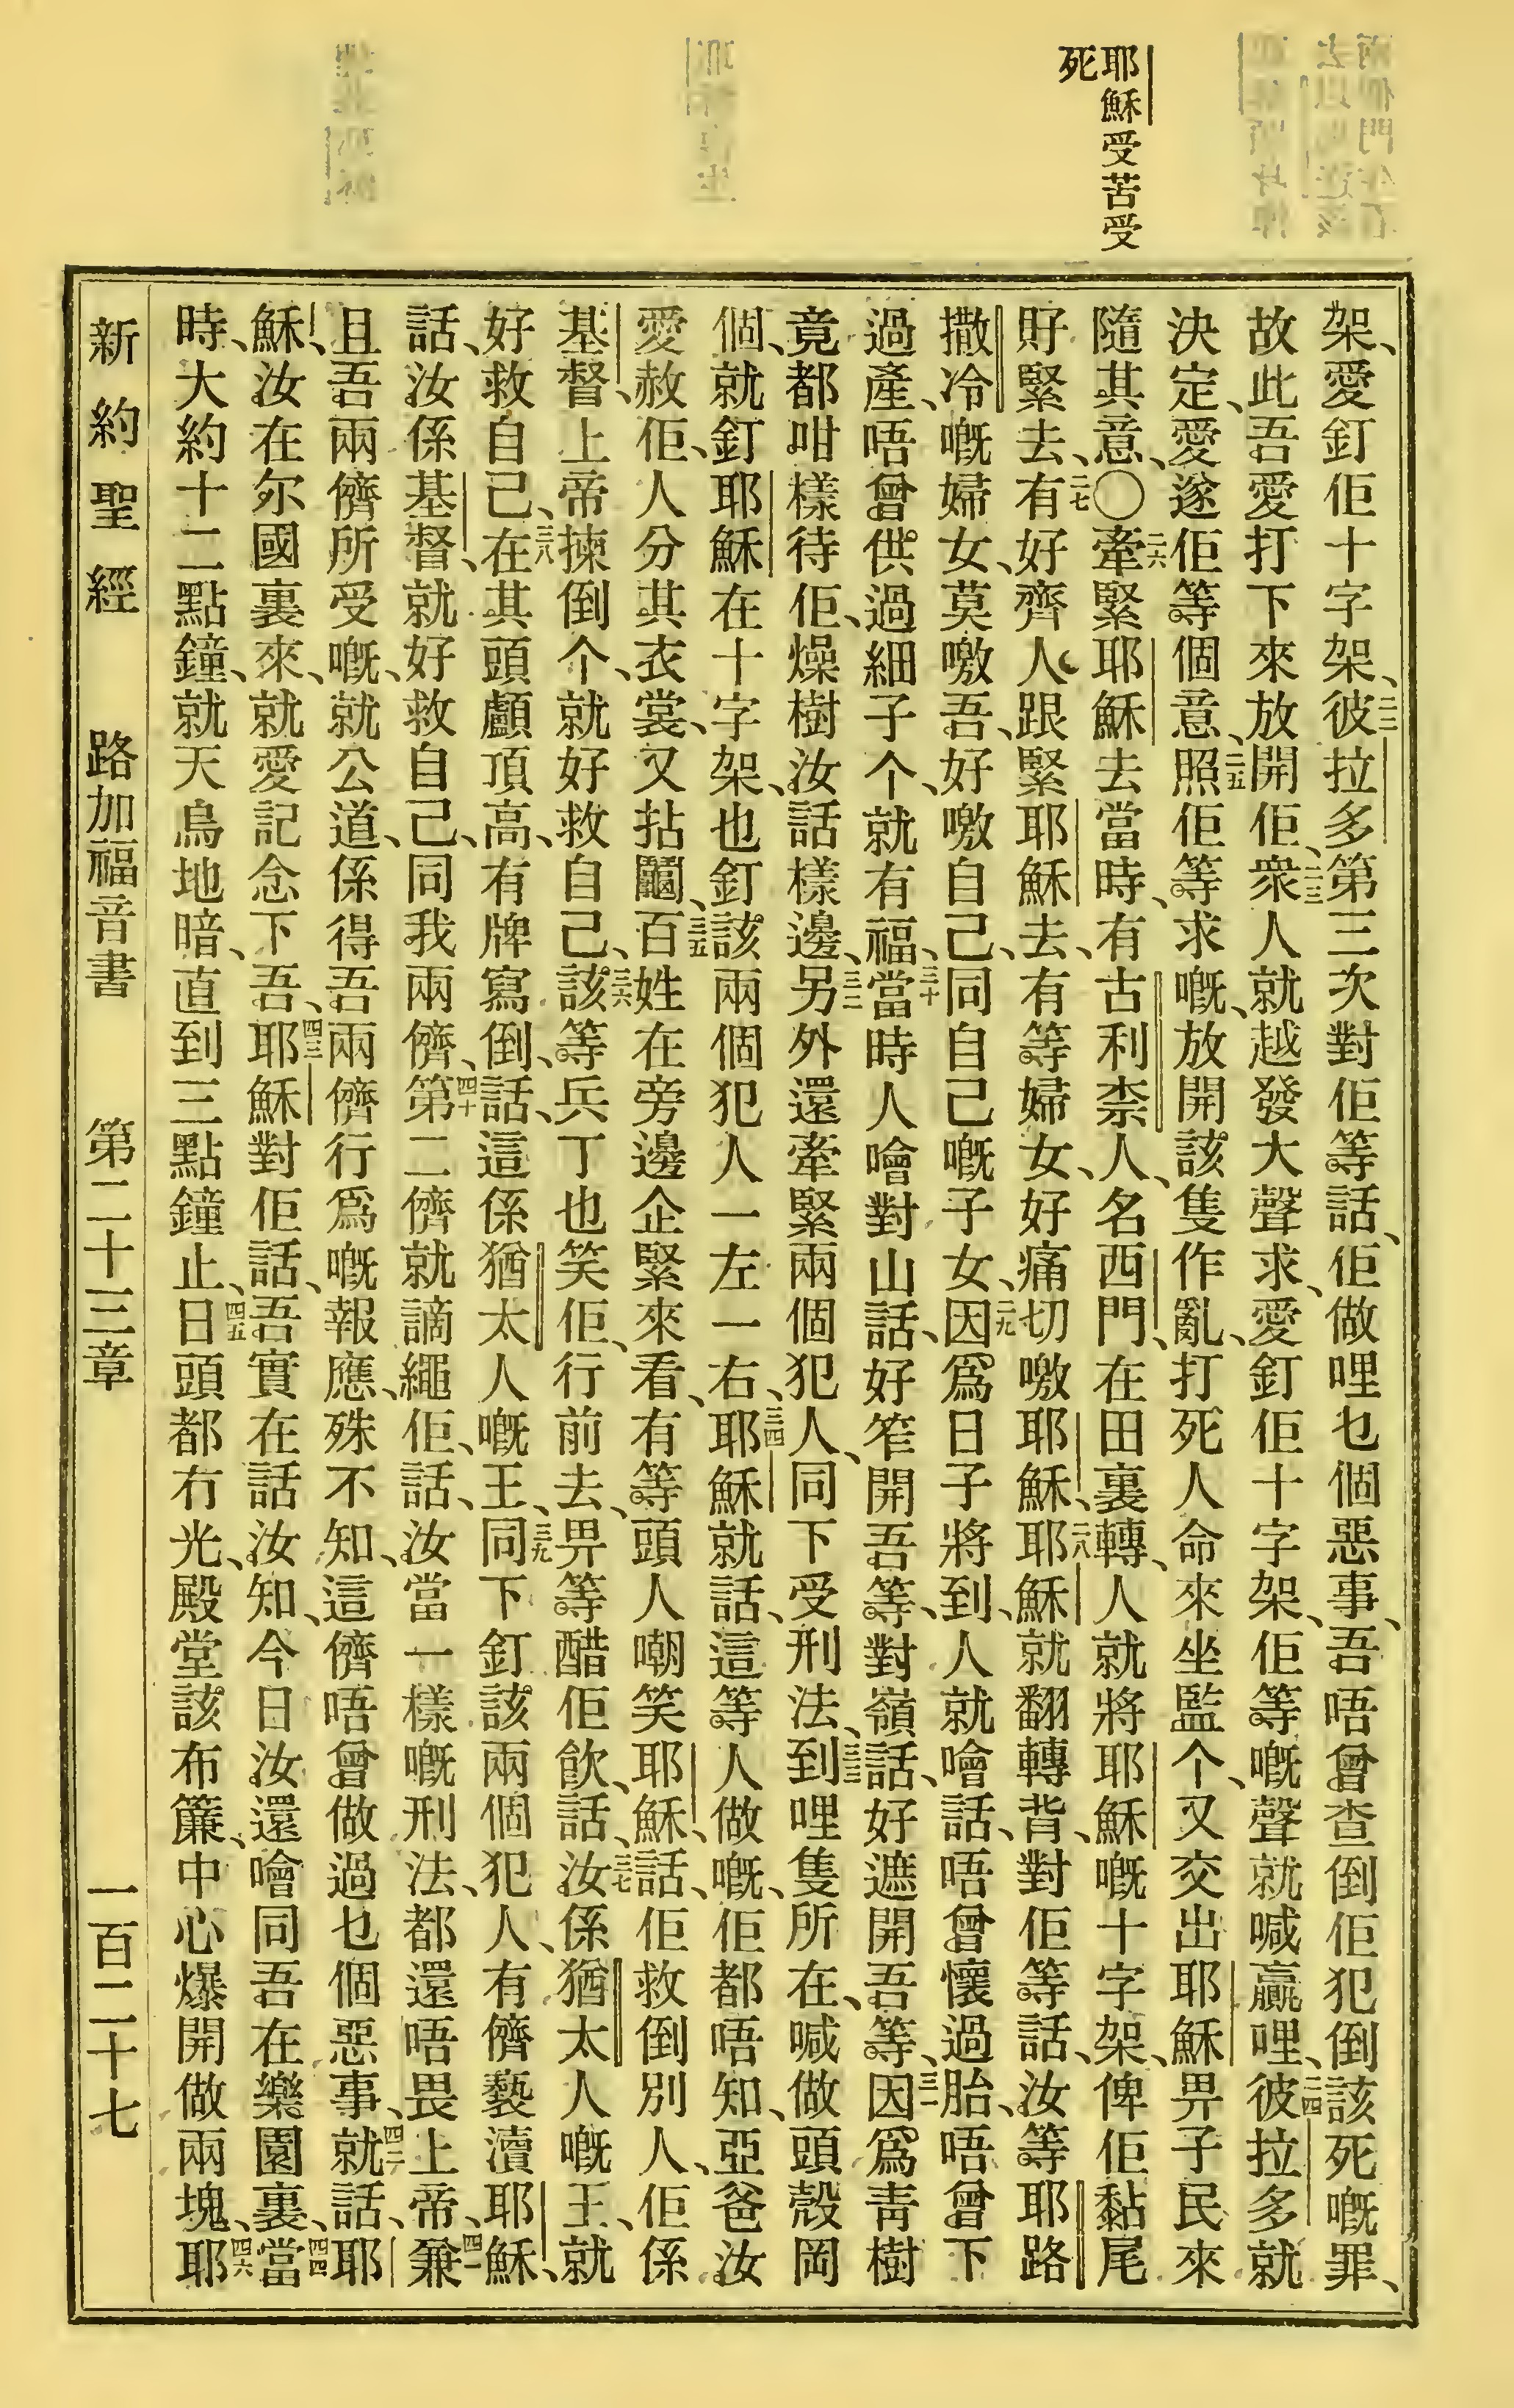 耶穌受苦受
死
架、愛釘佢十字架、二二彼拉多第三次對佢等話、佢做哩乜個惡事、吾唔曾查倒佢犯倒該死嘅罪、
故此吾愛打下來放開佢、二三衆人就越發大聲求、愛釘佢十字架、佢等嘅聲就喊贏哩、二四彼拉多就
決定、愛遂佢等個意、二五照佢等求嘅、放開該隻作亂、打死人命來坐監个、又交出耶穌畀子民來
隨其意、〇二六牽緊耶穌去當時、有古利柰人、名西門、在田裏轉、人就將耶穌嘅十字架、俾佢黏尾
㝊緊去、二七有好齊人跟緊耶穌去、有等婦女、好痛切噭耶穌、二八耶穌就翻轉背、對佢等話、汝等耶路
撒冷嘅婦女、莫噭吾、好噭自己、同自己嘅子女、二九因爲日子將到、人就噲話、唔曾懷過胎、唔曾下
過產、唔曾供過細子个、就有福、三十當時人噲對山話、好笮開吾等、對嶺話、好遮開吾等、三一因爲靑樹
竟都咁樣待佢、燥樹汝話樣邊、三二另外還牽緊兩個犯人、同下受刑法、三三到哩隻所在、喊做頭殼岡
個、就釘耶穌在十字架、也釘該兩個犯人一左一右、三四耶穌就話、這等人做嘅、佢都唔知、亞爸汝
愛赦佢、人分其衣裳、又拈鬮、三五百姓在旁邊企緊來看、有等頭人嘲笑耶穌、話、佢救倒別人、佢係
基督、上帝揀倒个、就好救自己、三六該等兵丁也笑佢、行前去、畀等醋佢飲、話、三七汝係猶太人嘅王、就
好救自己、三八在其頭顱頂高、有牌寫倒、話、這係猶太人嘅王、三九同下釘該兩個犯人、有儕褻瀆耶穌、
話、汝係基督、就好救自己、同我兩儕、四十第二儕就謫繩佢、話、汝當一樣嘅刑法、都還唔畏上帝、四一兼
且吾兩儕所受嘅、就公道、係得吾兩儕行爲嘅報應、殊不知、這儕唔曾做過乜個惡事、四二就話、耶
穌、汝在尔國裏來、就愛記念下吾、四三耶穌對佢話、吾實在話汝知、今日汝還噲同吾在樂園裏、四四當
時、大約十二點鐘、就天烏地暗、直到三點鐘止、四五日頭都冇光、殿堂該布簾、中心爆開做兩塊、四六耶
新約聖經　路加福音書　第二十三章　一百二十七